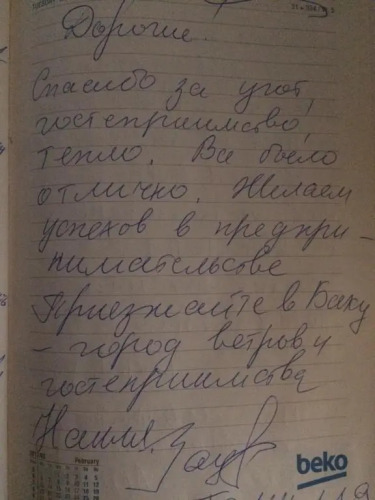 Дорогие.
Спасибо за уют,
гостеприимство,
тепло. Все было
отлично. Желаем
успехов в предпри-
нимательстве
Приезжайте в Баку
- город ветров и
гостеприимства
Наиля.
February
beko